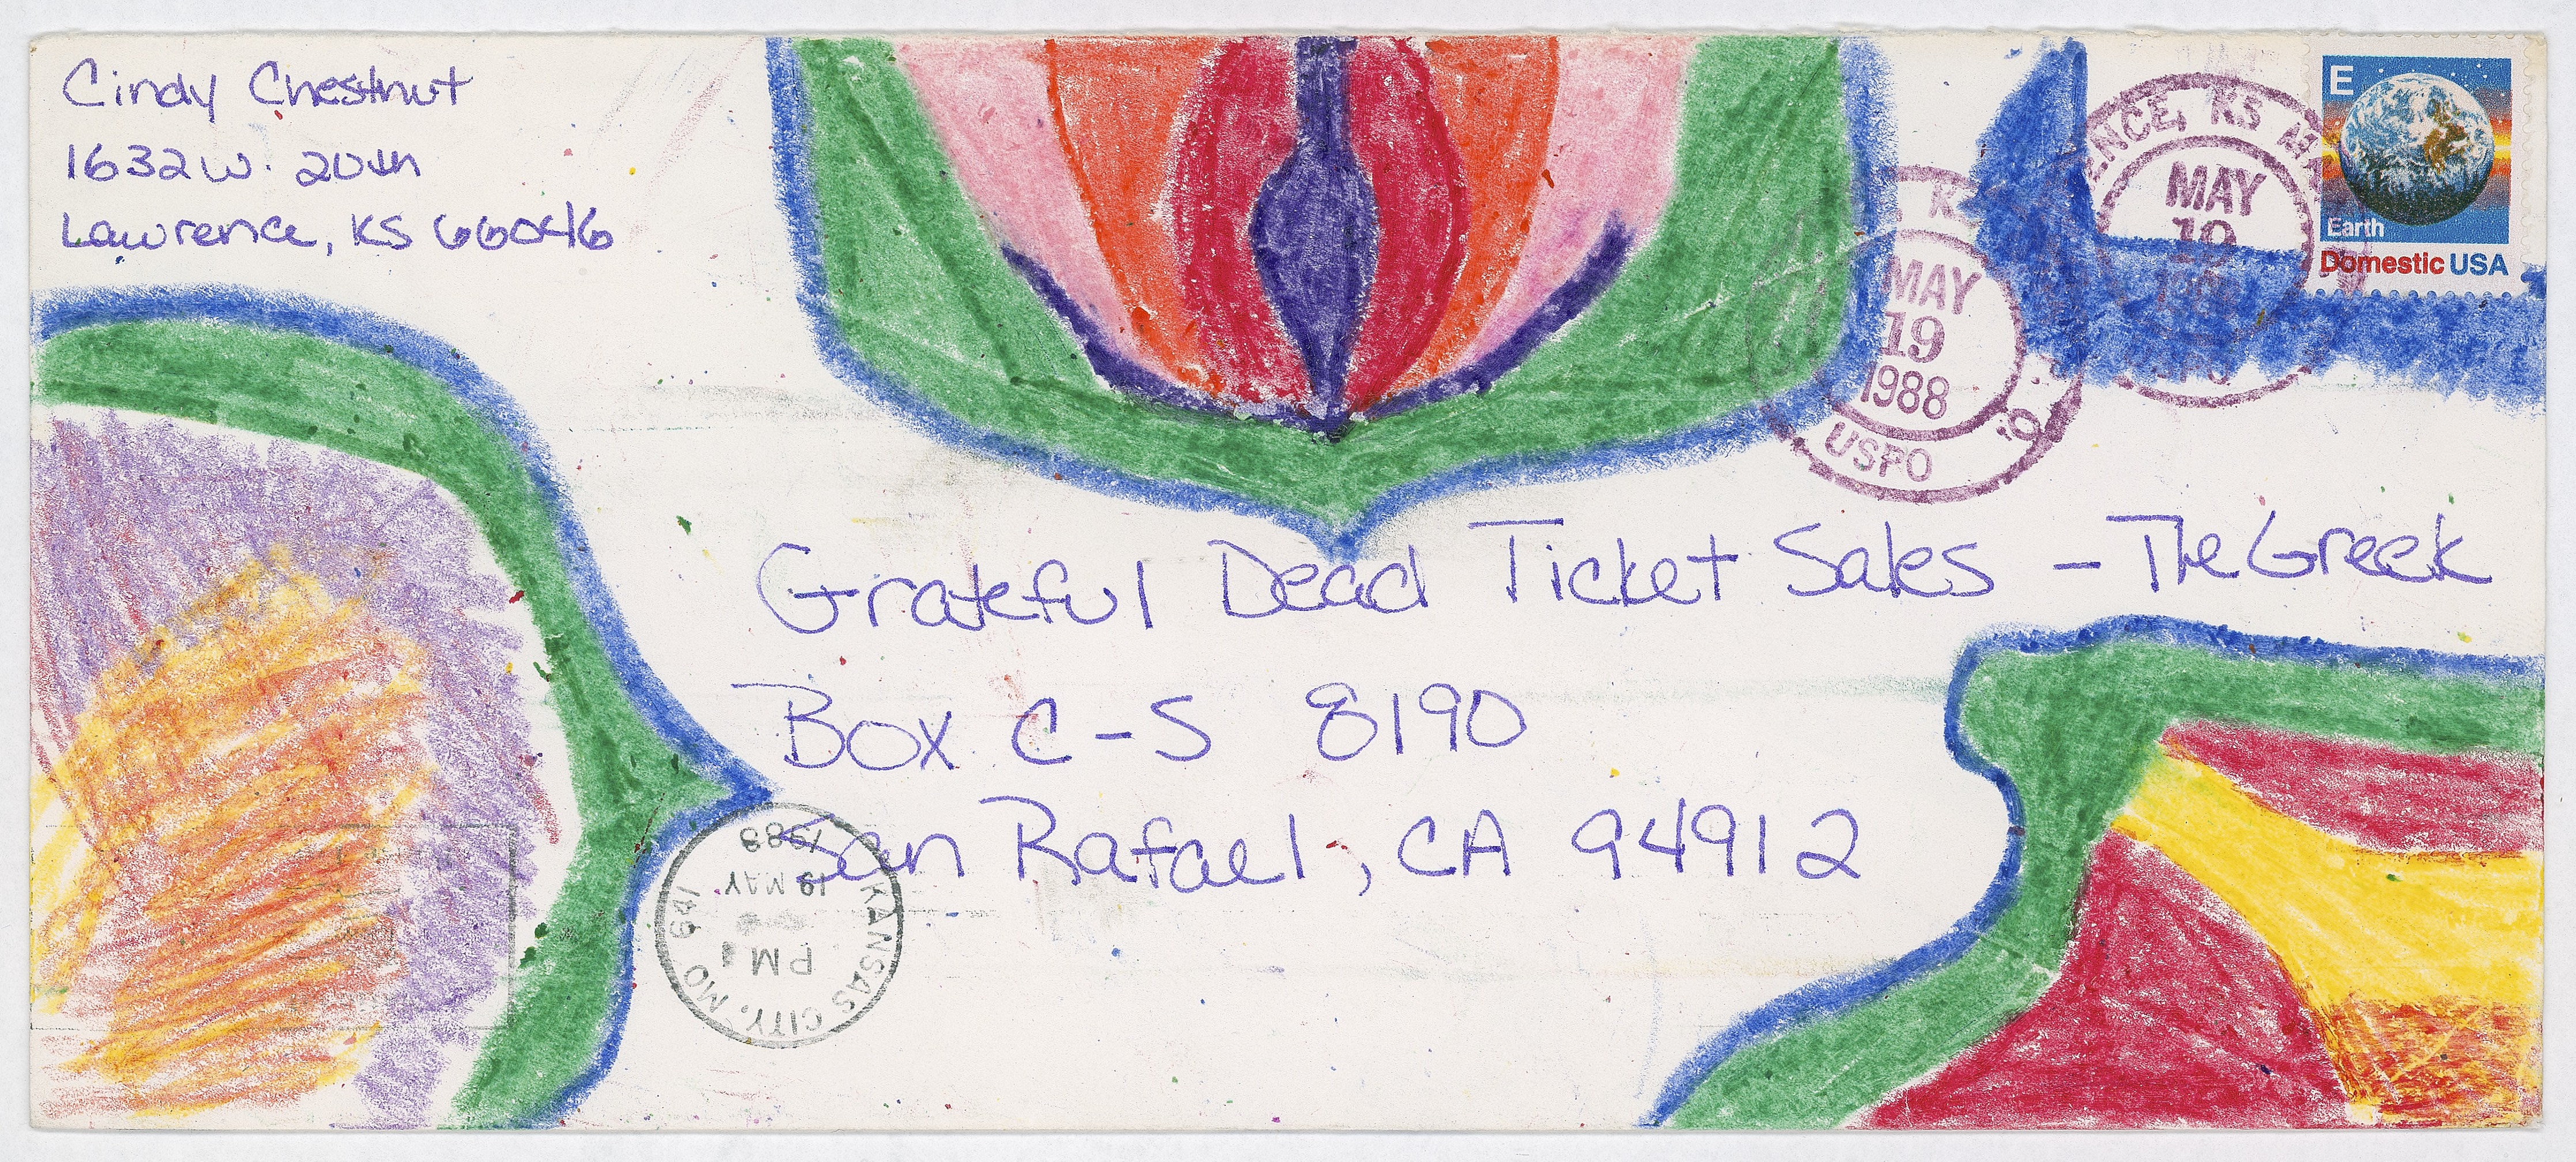 Cindy Chestnut
1632 W. 20th
Lawrence, KS 66046
ENCE, KS
MAY
19
MAY
19
1988
USPO
E
Earth
Domestic USA
Grateful Dead Ticket Sales – The Greek
Box C-S 8190
San Rafael, CA 94912
KANSAS CITY, MO 641
PM
19 MAY
1988